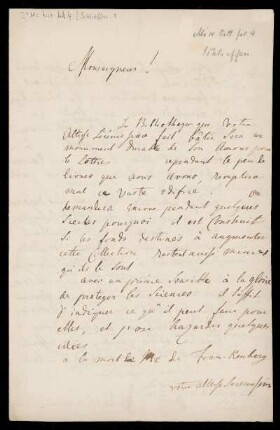 Monseigneur!
La Bibliotheque que Votre
Altesse Serenissime fait bâtir sera un
monument durable de Son Amour pour
les Lettres cependant le peu de
livres que nous avons, remplira
mal ce vaste edifice. On
demandera encore pendant quelques
Siecles pourquoi il est construit
Si les fonds destinés à augmenter
cette Collection restent aussi
qu'ils le sont
avec un prince sensible à la gloire
de proteger les Sciences il suffit
d'indiquer ce qu'il peut faire pour
Elles, et j'ose hazarder quelques
idées
à la mort de Mr de
votre Altesse Serenissime